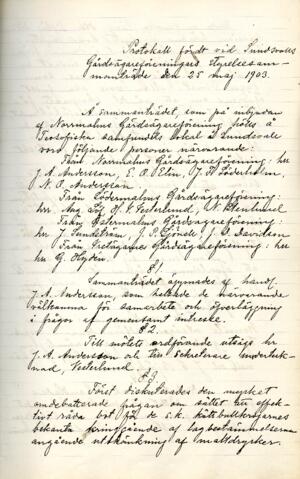 Protokoll fördt vid Sundsvalls
Gårdsägareföreningars styrelsesam-
manträde den 25 maj 1903.
Å sammanträdet, som på inbjudan
af Norrmalms Gårdsägareförening hölls å
Teosofiska samfundets lokal i Sundsvall
voro följande personer närvarande:
Från Norrmalms Gårdsägareförening: hrr
J. A. Andersson, E. O. Elm, J. H. Söderholm,
N. O. Andersson
Från Södermalms Gårdsägareförening:
hrr Aug. H. V. Vesterlund, N. Stenlund
Från Östermalms Gårdsägareförening:
hrr J. Sundström, J. P. J. O. Davidson
Från Gårdsägareförening: hrr
G. Hydén.
§ 1.
Sammanträdet öppnades af handl.
J. A. Andersson, som helsade de närvarande
välkomna för samarbete och öfverläggning
i frågor af gemensamt intresse.
§ 2.
Till mötets ordförande utsågs hr
J. A. Andersson och till sekreterare underteck-
nad, Vesterlund.
§ 3.
Först diskuterades den mycket
omdebatterade frågan om sättet till effek-
tivt råda bot för de s.k. köttbullkrogarnes
bekanta kringgående af lagbestämmelserna
angående utskänkning af maltdrycker.